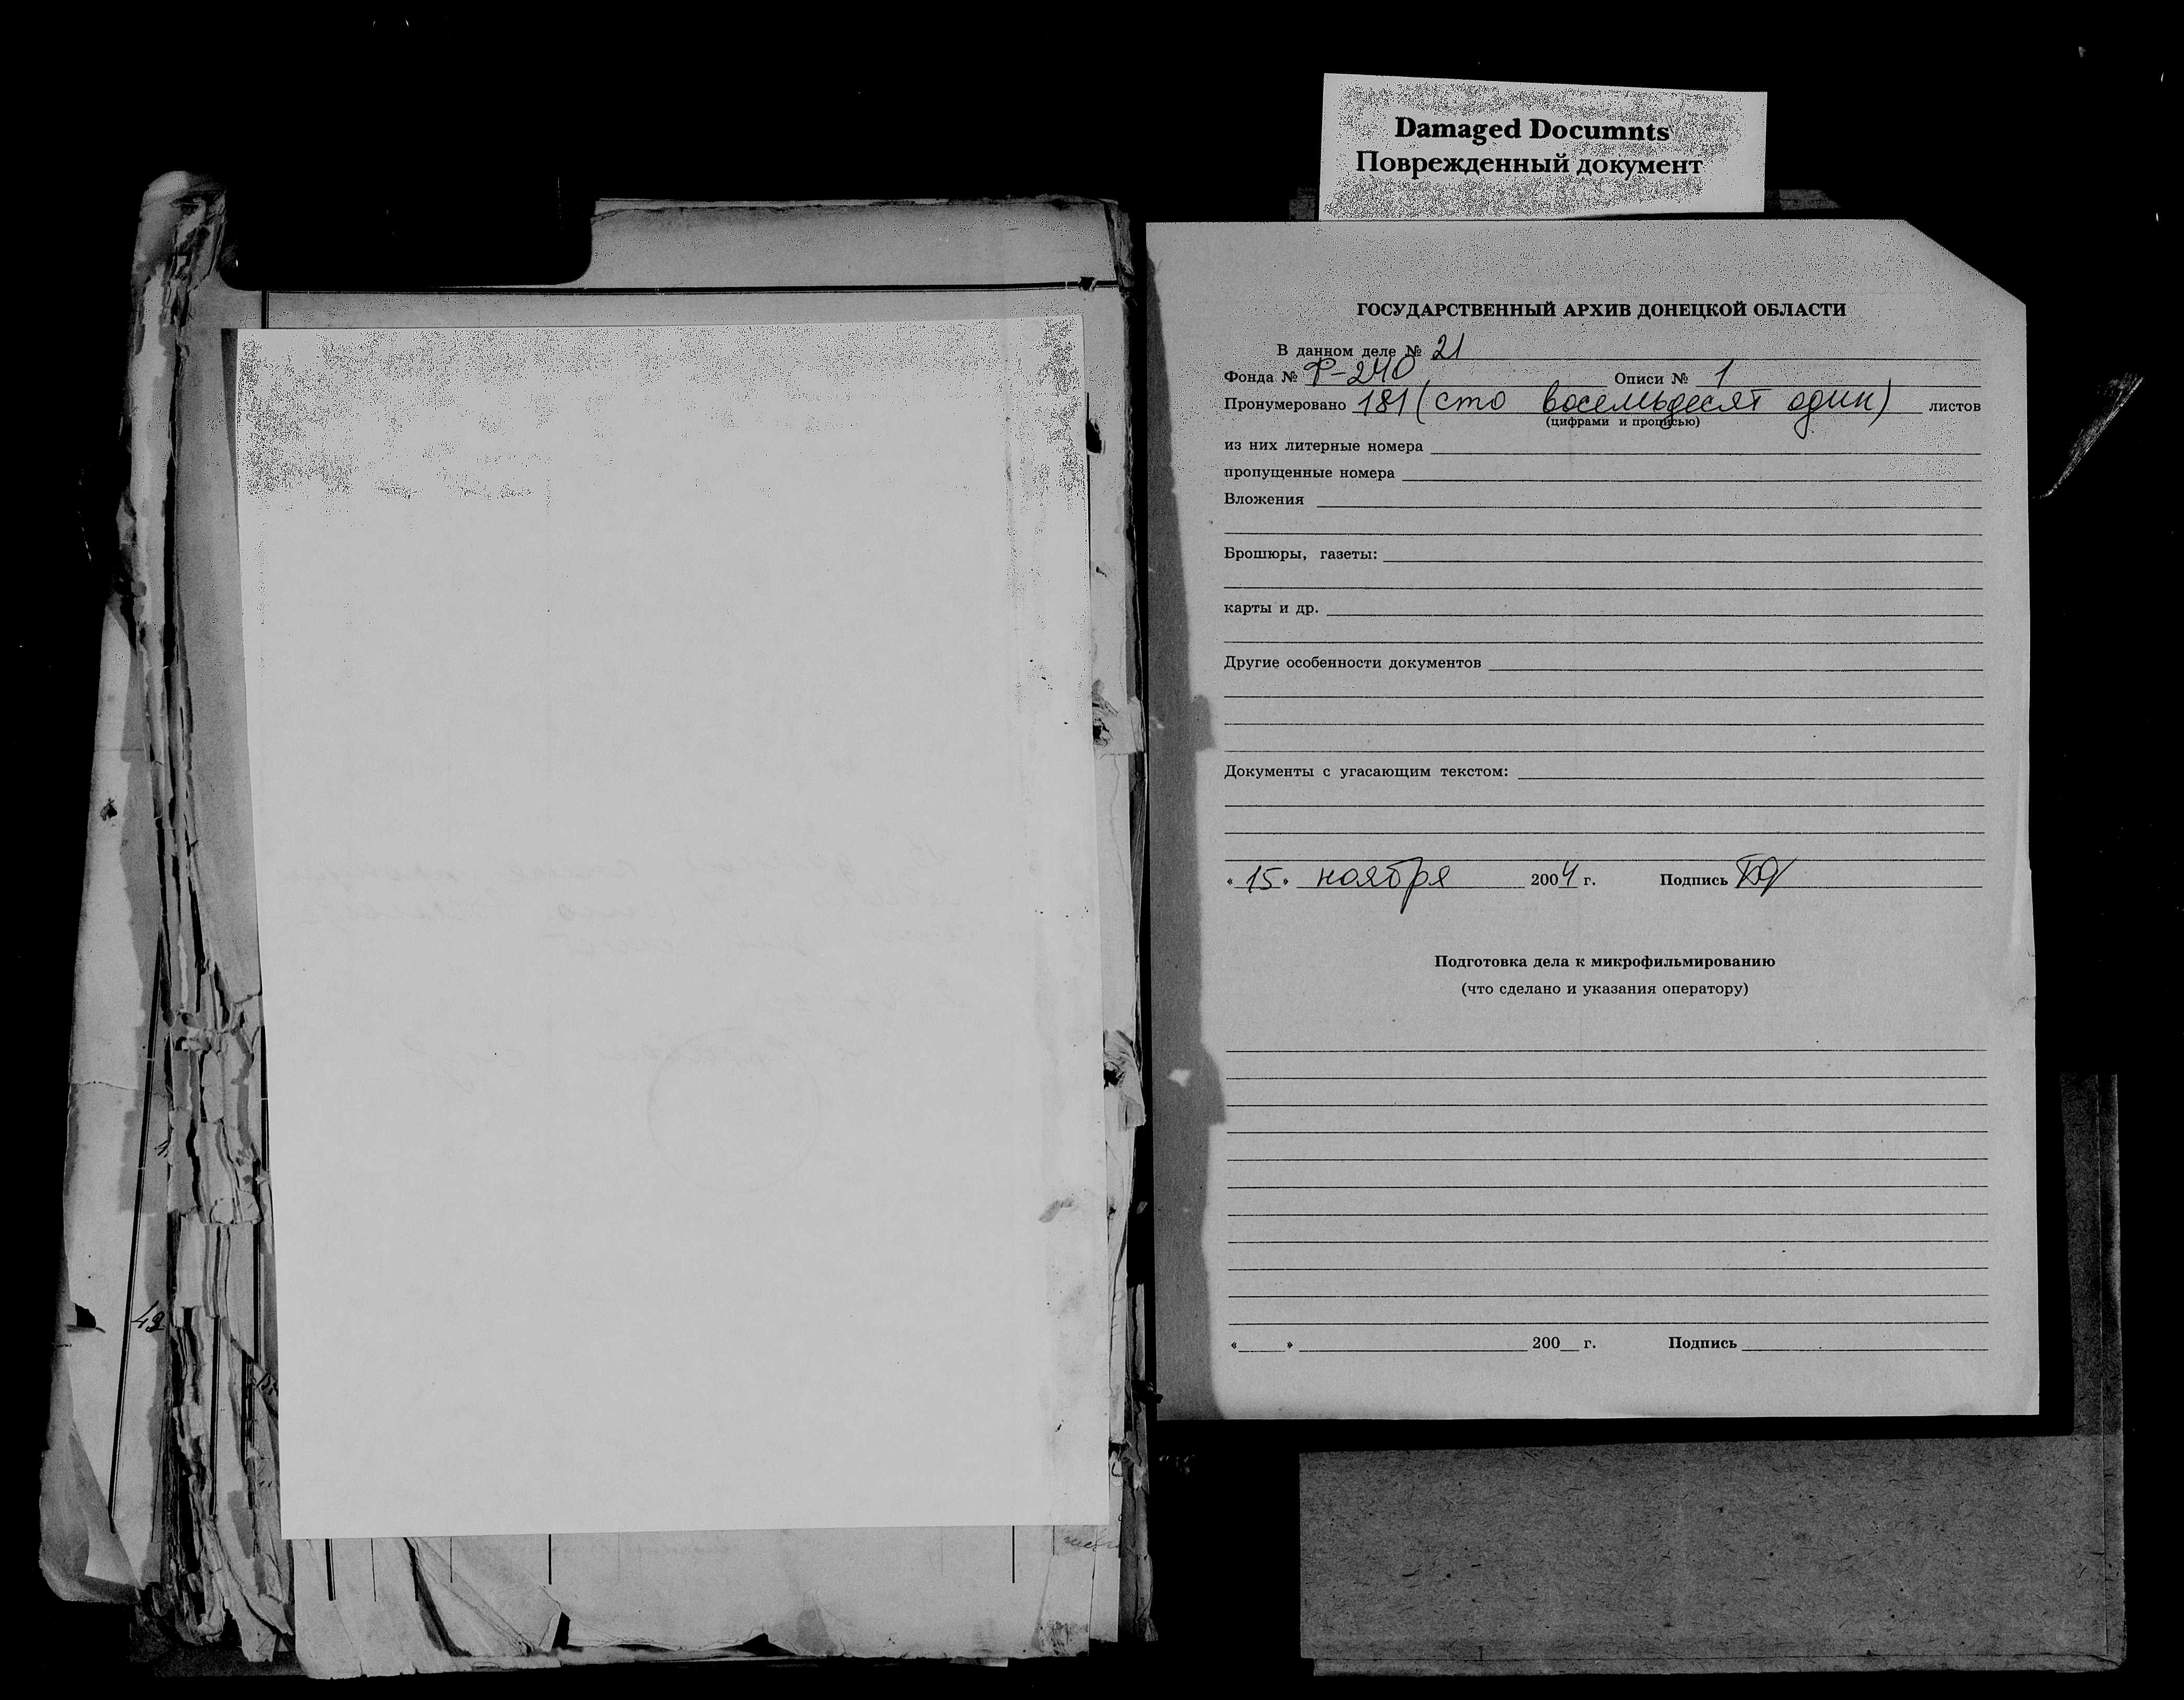 Damaged Documnts
Поврежденный документ
ГОСУДАРСТВЕННЫЙ АРХИВ ДОНЕЦКОЙ ОБЛАСТИ
В данном деле № 21
Фонда № Р-240 Описи № 1
Пронумеровано 181 (сто восемьдесят один) листов
(цифрами и прописью)
из них литерные номера
пропущенные номера
Вложения
Брошюры, газеты:
карты и др.
Другие особенности документов
Документы с угасающим текстом:
«15» ноября 2004 г. Подпись
Подготовка дела к микрофильмированию
(что сделано и указания оператору)
« » 200 г. Подпись
49